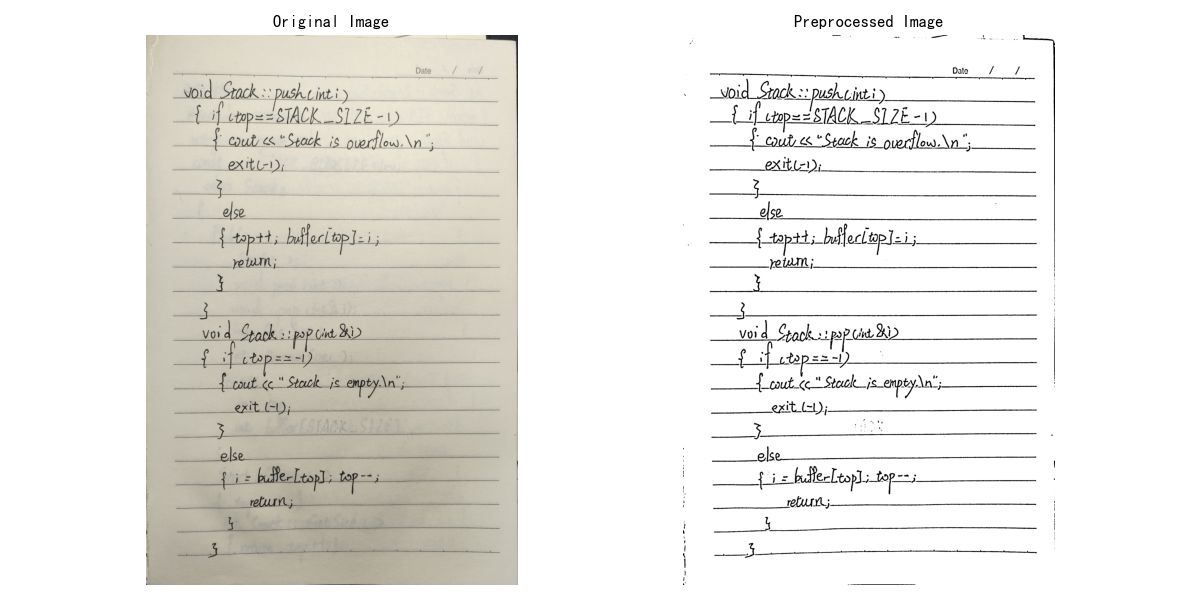 Original Image
Date / /
void Stack::push(int i)
{ if (top==STACK_SIZE-1)
{ cout << "Stack is overflow.\n";
exit(-1);
}
else
{ top++; buffer[top]=i;
return;
}
}
void Stack::pop(int &i)
{ if (top==-1)
{ cout << "Stack is empty.\n";
exit(-1);
}
else
{ i = buffer[top]; top--;
return;
}
}
Preprocessed Image
Date / /
void Stack::push(int i)
{ if (top==STACK_SIZE-1)
{ cout << "Stack is overflow.\n";
exit(-1);
}
else
{ top++; buffer[top]=i;
return;
}
}
void Stack::pop(int &i)
{ if (top==-1)
{ cout << "Stack is empty.\n";
exit(-1);
}
else
{ i = buffer[top]; top--;
return;
}
}